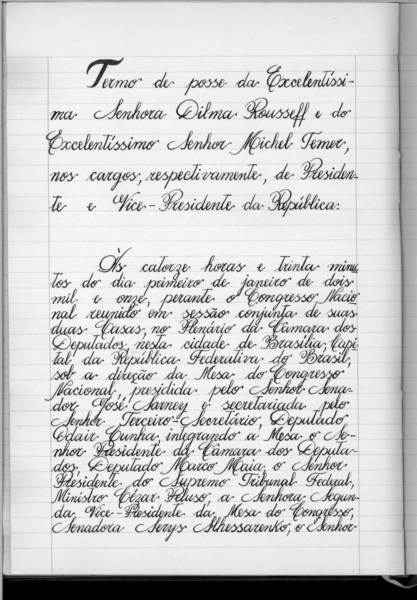 Termo de posse da Excelentíssi-
ma Senhora Dilma Rousseff e do
Excelentíssimo Senhor Michel Temer,
nos cargos, respectivamente, de Presiden-
te e Vice-Presidente da República:
Às catorze horas e trinta minu
tos do dia primeiro de janeiro de dois
mil e onze, perante o Congresso Nacio
nal reunido em sessão conjunta de suas
duas Casas, no Plenário da Câmara dos
Deputados, nesta cidade de Brasília, Capi
tal da República Federativa do Brasil,
sob a direção da Mesa do Congresso
Nacional, presidida pelo Senhor Sena-
dor José Sarney e secretariada pelo
Senhor Terceiro-Secretário, Deputado
Odair Cunha, integrando a Mesa o Se-
nhor Presidente da Câmara dos Deputa-
dos, Deputado Marco Maia, o Senhor
Presidente do Supremo Tribunal Federal,
Ministro Cézar Peluso, a Senhora Segun-
da Vice-Presidente da Mesa do Congresso,
Senadora Serys Slhessarenko, o Senhor